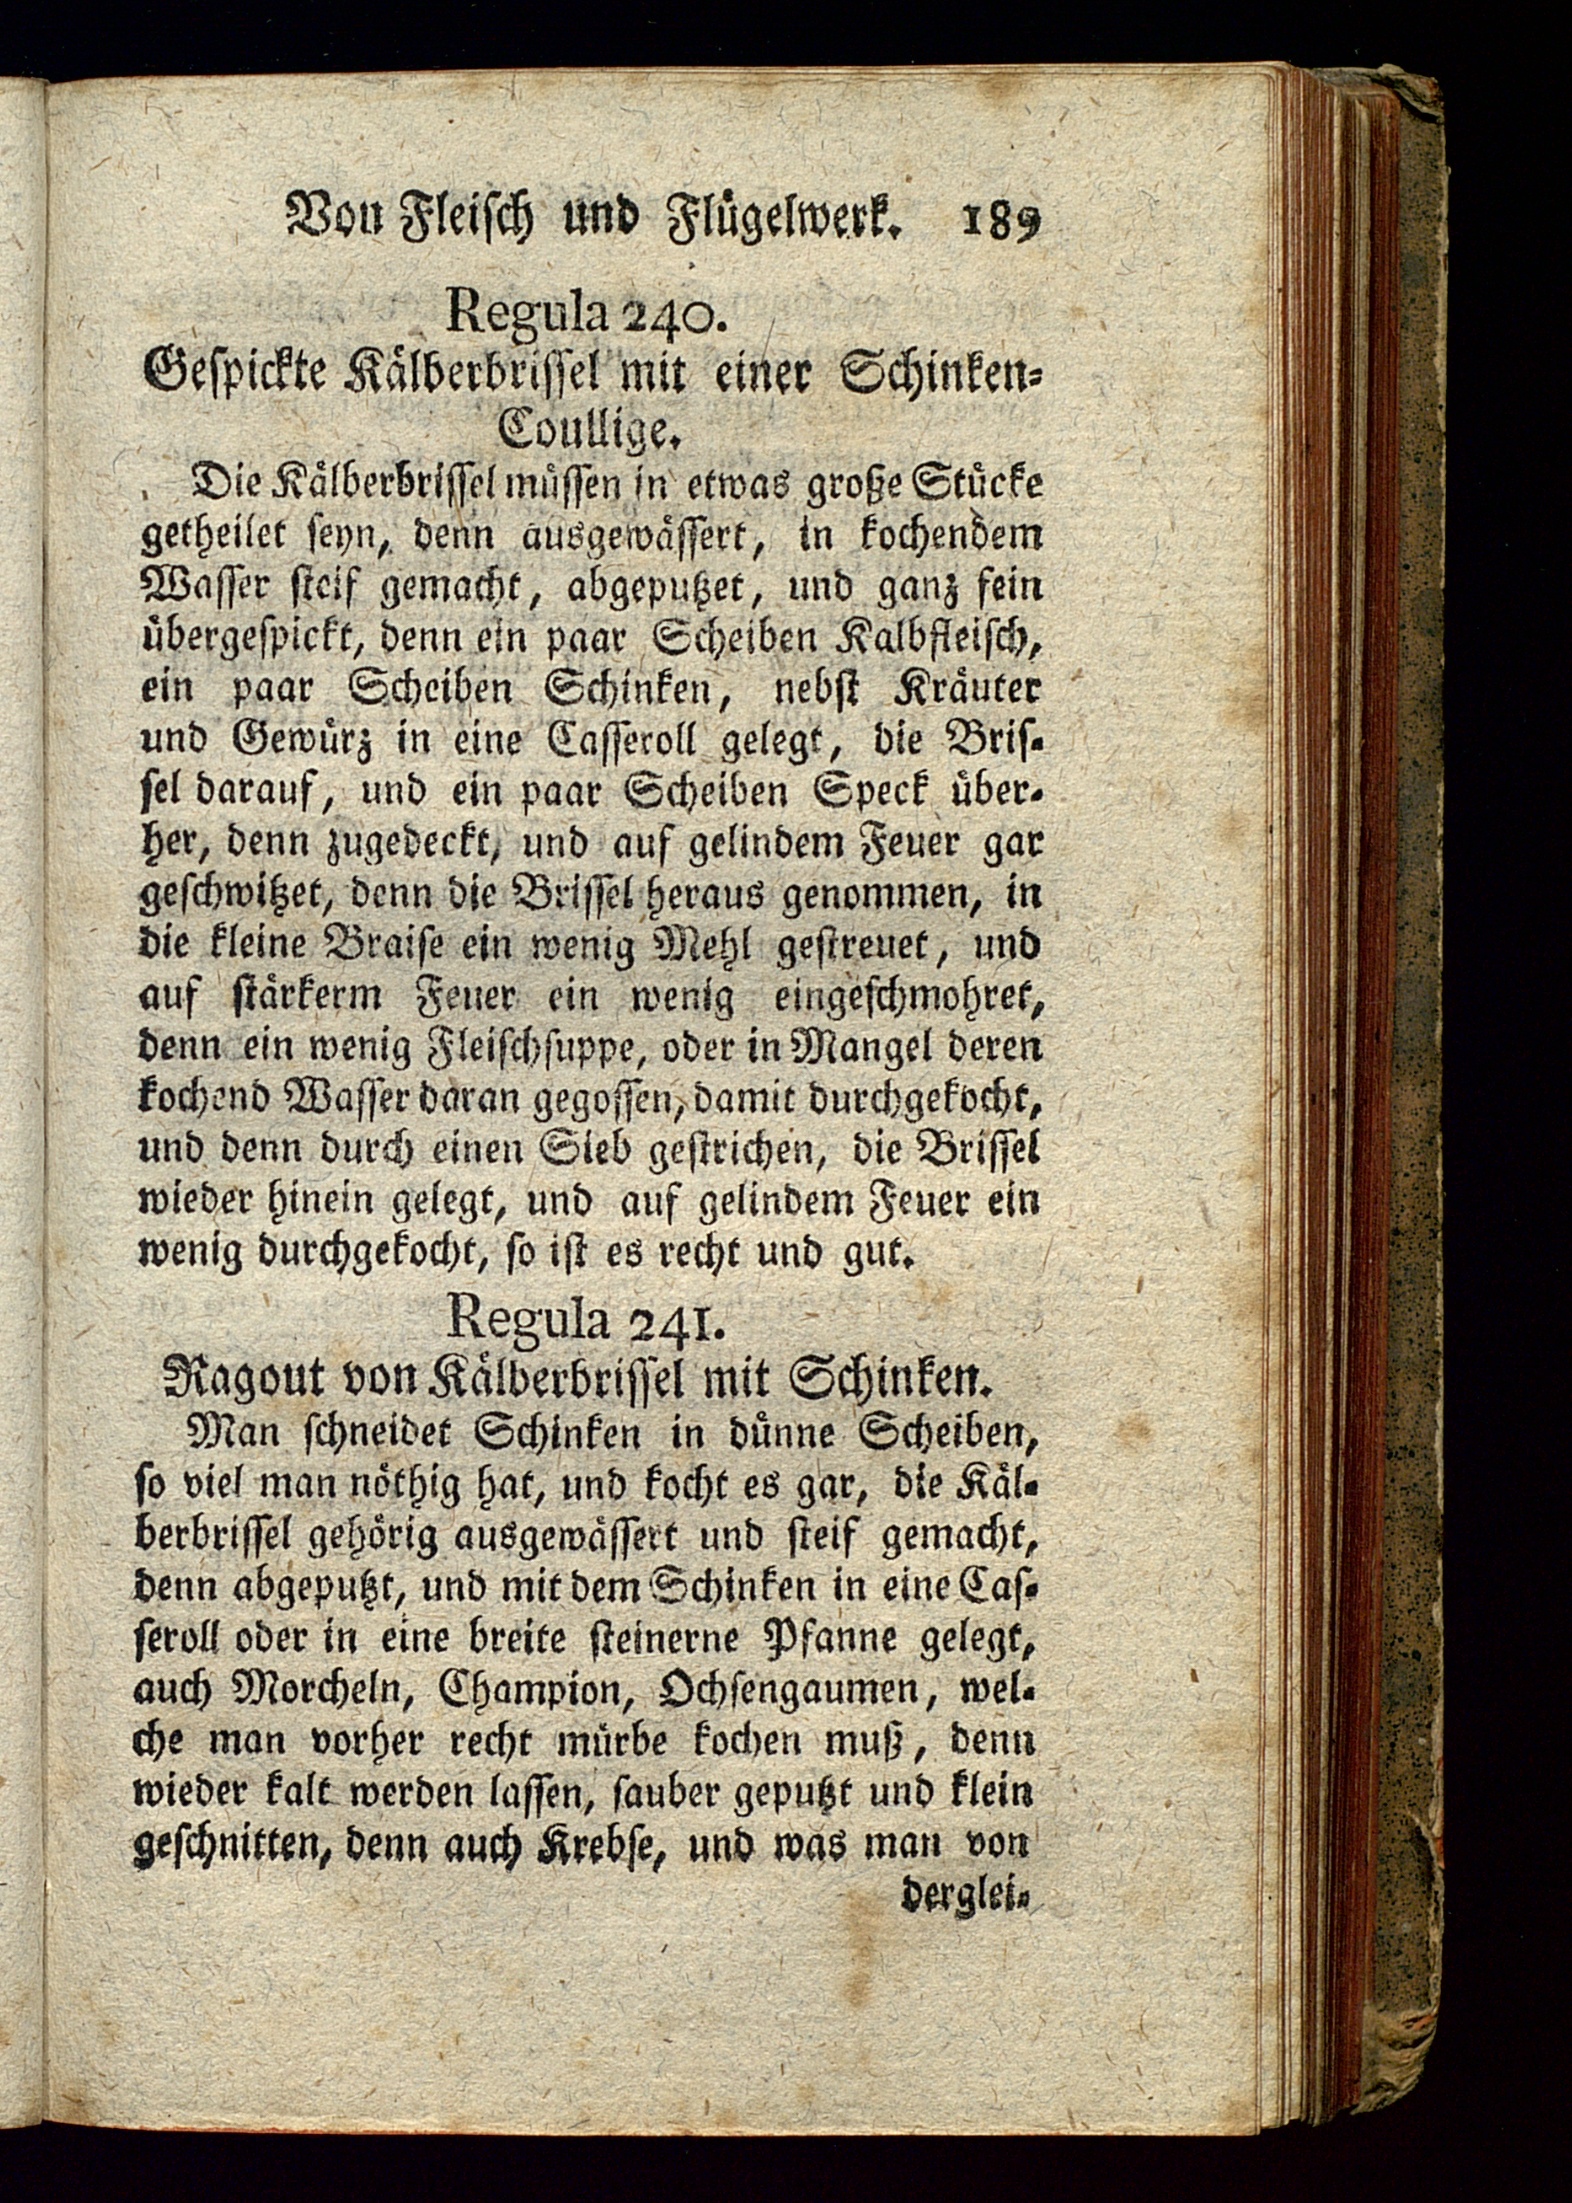 Von Fleisch und Flügelwerk. 189
Regula 240.
Gespickte Kälberbrissel mit einer Schinken-
Coullige.
Die Kälberbrissel müssen in etwas große Stücke
getheilet seyn, denn ausgewässert, in kochendem
Wasser steif gemacht, abgeputzet, und ganz fein
übergespickt, denn ein paar Scheiben Kalbfleisch,
ein paar Scheiben Schinken, nebst Kräuter
und Gewürz in eine Casseroll gelegt, die Bris-
sel darauf, und ein paar Scheiben Speck über-
her, denn zugedeckt, und auf gelindem Feuer gar
geschwitzet, denn die Brissel heraus genommen, in
die kleine Braise ein wenig Mehl gestreuet, und
auf stärkerm Feuer ein wenig eingeschmohret,
denn ein wenig Fleischsuppe, oder in Mangel deren
kochend Wasser daran gegossen, damit durchgekocht,
und denn durch einen Sieb gestrichen, die Brissel
wieder hinein gelegt, und auf gelindem Feuer ein
wenig durchgekocht, so ist es recht und gut.
Regula 241.
Ragout von Kälberbrissel mit Schinken.
Man schneidet Schinken in dünne Scheiben,
so viel man nöthig hat, und kocht es gar, die Käl-
berbrissel gehörig ausgewässert und steif gemacht,
denn abgeputzt, und mit dem Schinken in eine Cas-
seroll oder in eine breite steinerne Pfanne gelegt,
auch Morcheln, Champion, Ochsengaumen, wel-
che man vorher recht mürbe kochen muß, denn
wieder kalt werden lassen, sauber geputzt und klein
geschnitten, denn auch Krebse, und was man von
derglei-